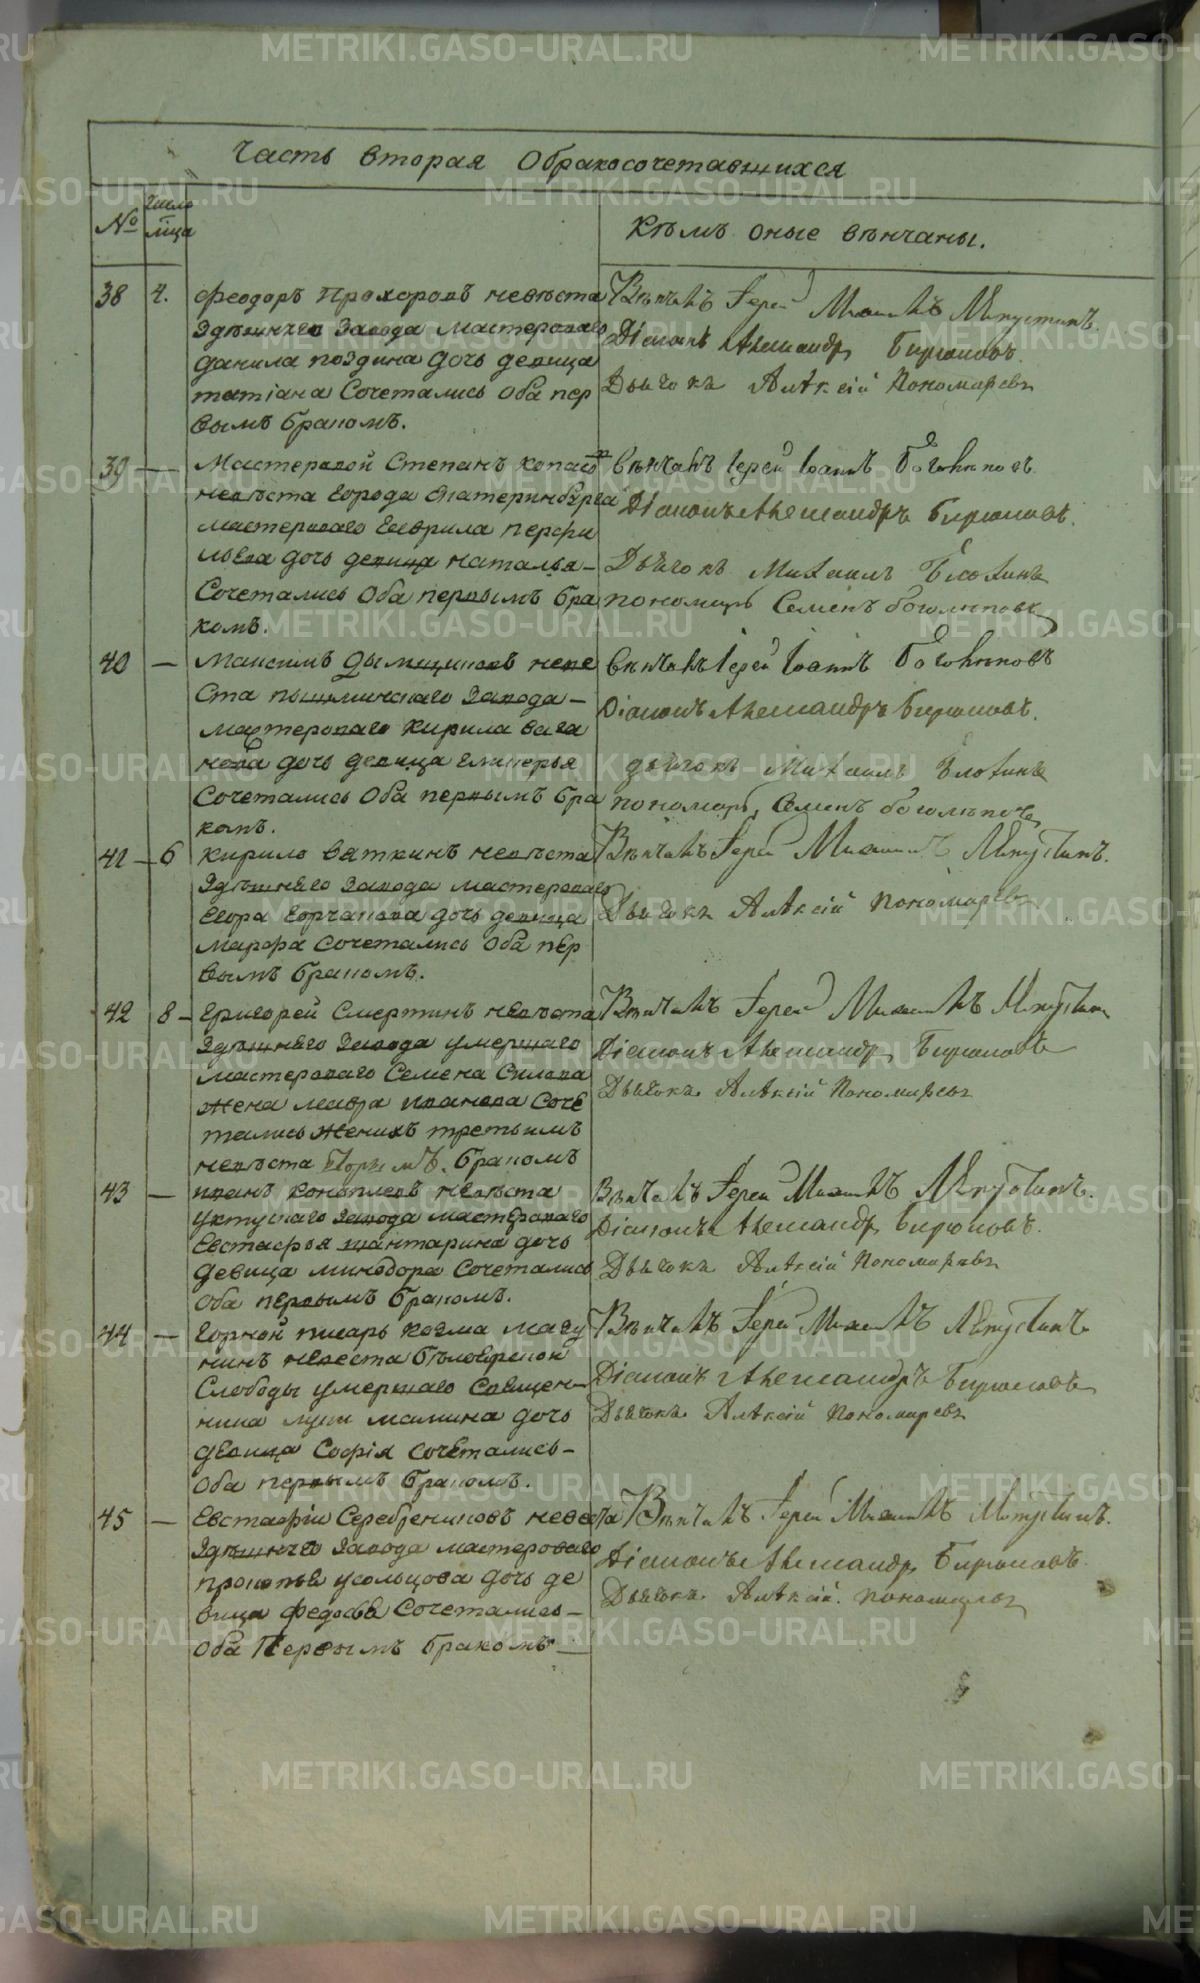 Часть вторая Обракосочетавшихся
№
число
мца
Кѣмъ оные вѣнчаны.
38 4. Феодоръ Прохоровъ невѣста
Здѣшнего Завода Мастероваго
данила поздина дочь девица
татіана Сочетались Оба пер
вымъ бракомъ.
Вѣнчалъ Іерей
Діаконъ Александръ Бирюковъ
Дьячокъ Алѣксій Пономаревъ
39 — Мастеровой Степанъ копасовъ
невѣста города екатеринбурга
мастероваго Гаврила перфи
льева дочь девица наталья —
Сочетались Оба первымъ бра
комъ.
Вѣнчалъ Іерей Іоаннъ Боголюповъ
Діаконъ Александръ Бирюковъ.
Дьячокъ Михаилъ
пономарь Семенъ боголюповъ
40 — Максимъ Дымшиковъ неве
Ста пышминскаго Завода —
мастероваго Кирила вага
нова дочь девица гликерья
Сочетались Оба первымъ бра
комъ.
Вѣнчалъ Іерей Іоаннъ Боголюповъ
Діаконъ Александръ Бирюковъ.
дьячокъ Михаилъ
пономарь Семенъ боголюповъ
41 — 6 Кирило Вяткинъ невѣста
Здѣшняго Завода мастероваго
Егора Горчакова дочь девица
Марфа Сочетались Оба пер
вымъ бракомъ.
Вѣнчалъ Іерей
Дьячокъ Алѣксій Пономаревъ
42 8 — Григорей Смертинъ невѣста
Здѣшняго Завода умершаго
мастероваго Семена Силова
жена мавра иванова Соче
тались женихъ третьимъ
невѣста Вторымъ. бракомъ
Вѣнчалъ Іерей
Діаконъ Александръ Бирюковъ
Дьячокъ Алѣксій Пономаревъ
43 — иванъ коноплевъ невѣста
уктускаго Завода мастероваго
Евстафья шантарина дочь
девица минодора Сочетались
Оба первымъ бракомъ.
Вѣнчалъ Іерей
Діаконъ Александръ Бирюковъ.
Дьячокъ Алѣксій Пономаревъ
44 — горной писарь козма магу
нинъ невеста бѣлоярской
Слободы умершаго Священ—
ника луки мамина дочь
девица Софія сочетались —
Оба первымъ бракомъ.
Вѣнчалъ Іерей
Діаконъ Александръ Бирюковъ
Дьячокъ Алѣксій Пономаревъ
45 — Евстафій Серебрениковъ невеста
Здѣшнего Завода мастероваго
прокопья усольцова дочь де
вица федосья Сочетались —
Оба Первымъ бракомъ —
Вѣнчалъ Іерей
Діаконъ Александръ Бирюковъ.
Дьячокъ Алѣксій. Пономаревъ
METRIKI.GASO-URAL.RU